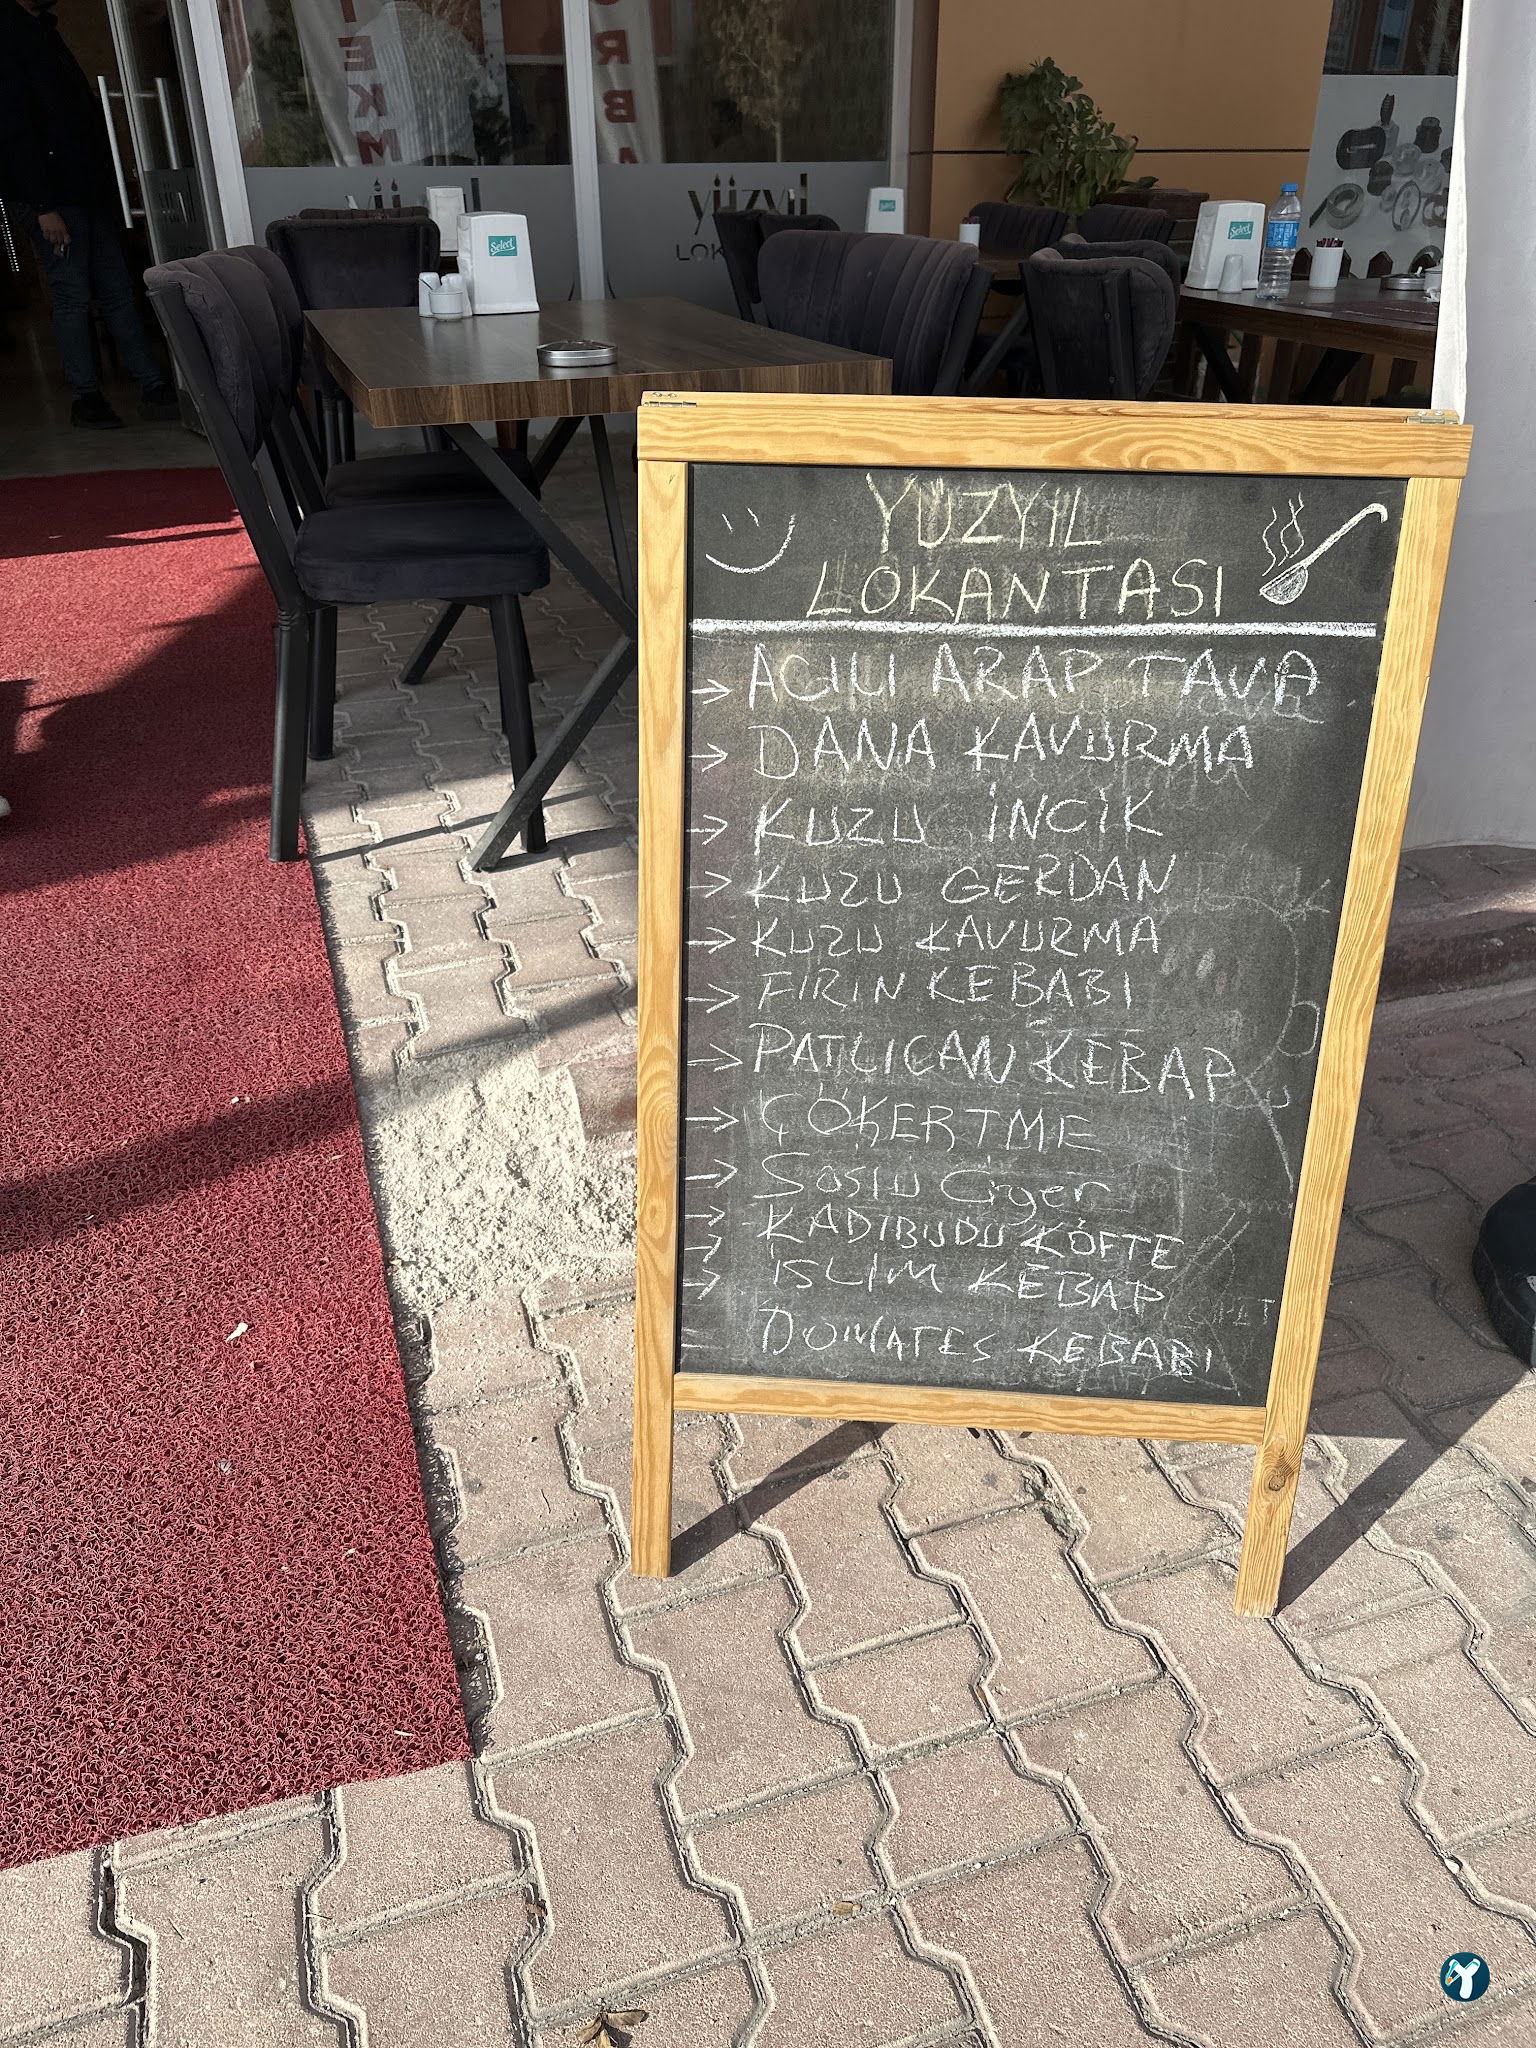 TEKM
ORBA
yüzyıl
LOK
Select
Select
YÜZYIL
LOKANTASI
→ ACILI ARAP TAVA
→ DANA KAVURMA
→ KUZU İNCİK
→ KUZU GERDAN
→ KUZU KAVURMA
→ FIRIN KEBABI
→ PATLICAN KEBAP
→ ÇÖKERTME
→ SOSLU Ciğer
→ KADIBUDU KÖFTE
→ İSLİM KEBAP
DOMATES KEBABI